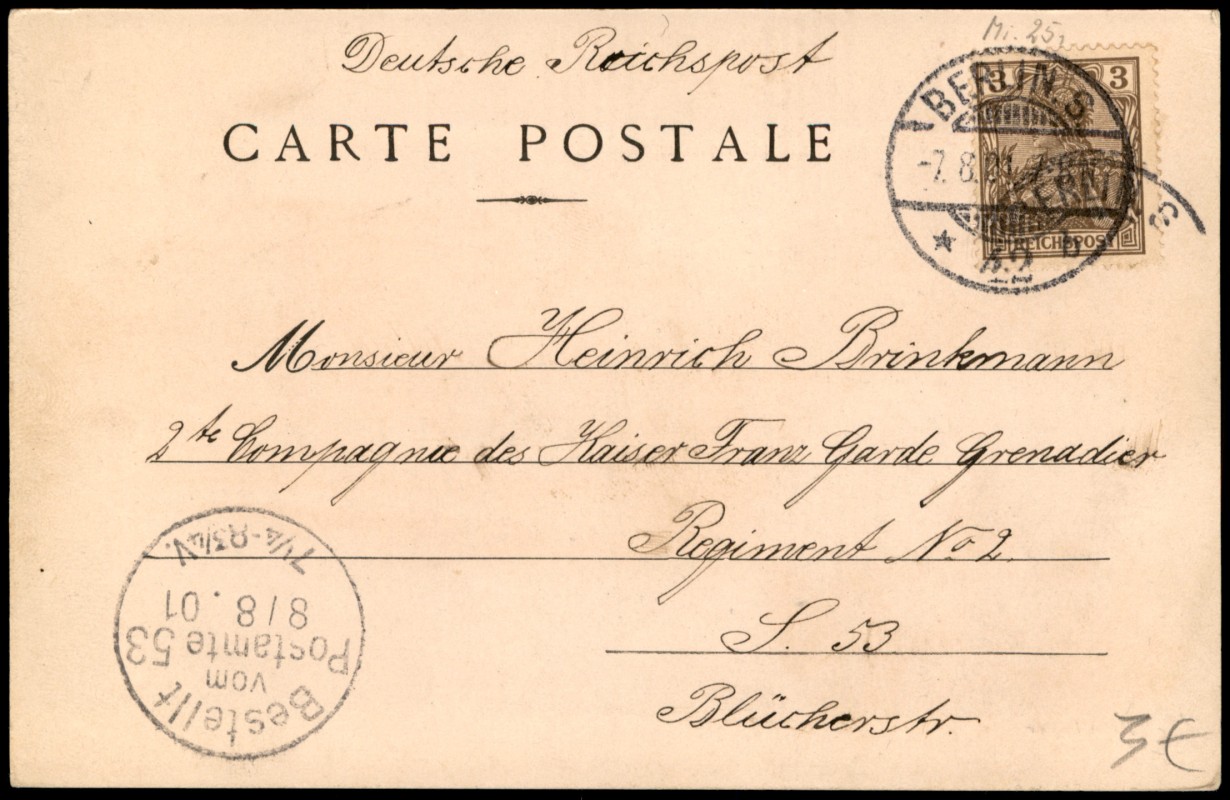 Mi. 25,
Deutsche Reichspost
CARTE POSTALE
3 3
REICHSPOST
BERLIN. S.
-7. 8. 01.
42 b
Monsieur Heinrich Brinkmann
2te Compagnie des Kaiser Franz Garde Grenadier
Regiment No 2.
S. 53
Blücherstr.
Bestellt
vom
Postamte 53
8/8. 01
7 1/4-8 3/4 V.
3€